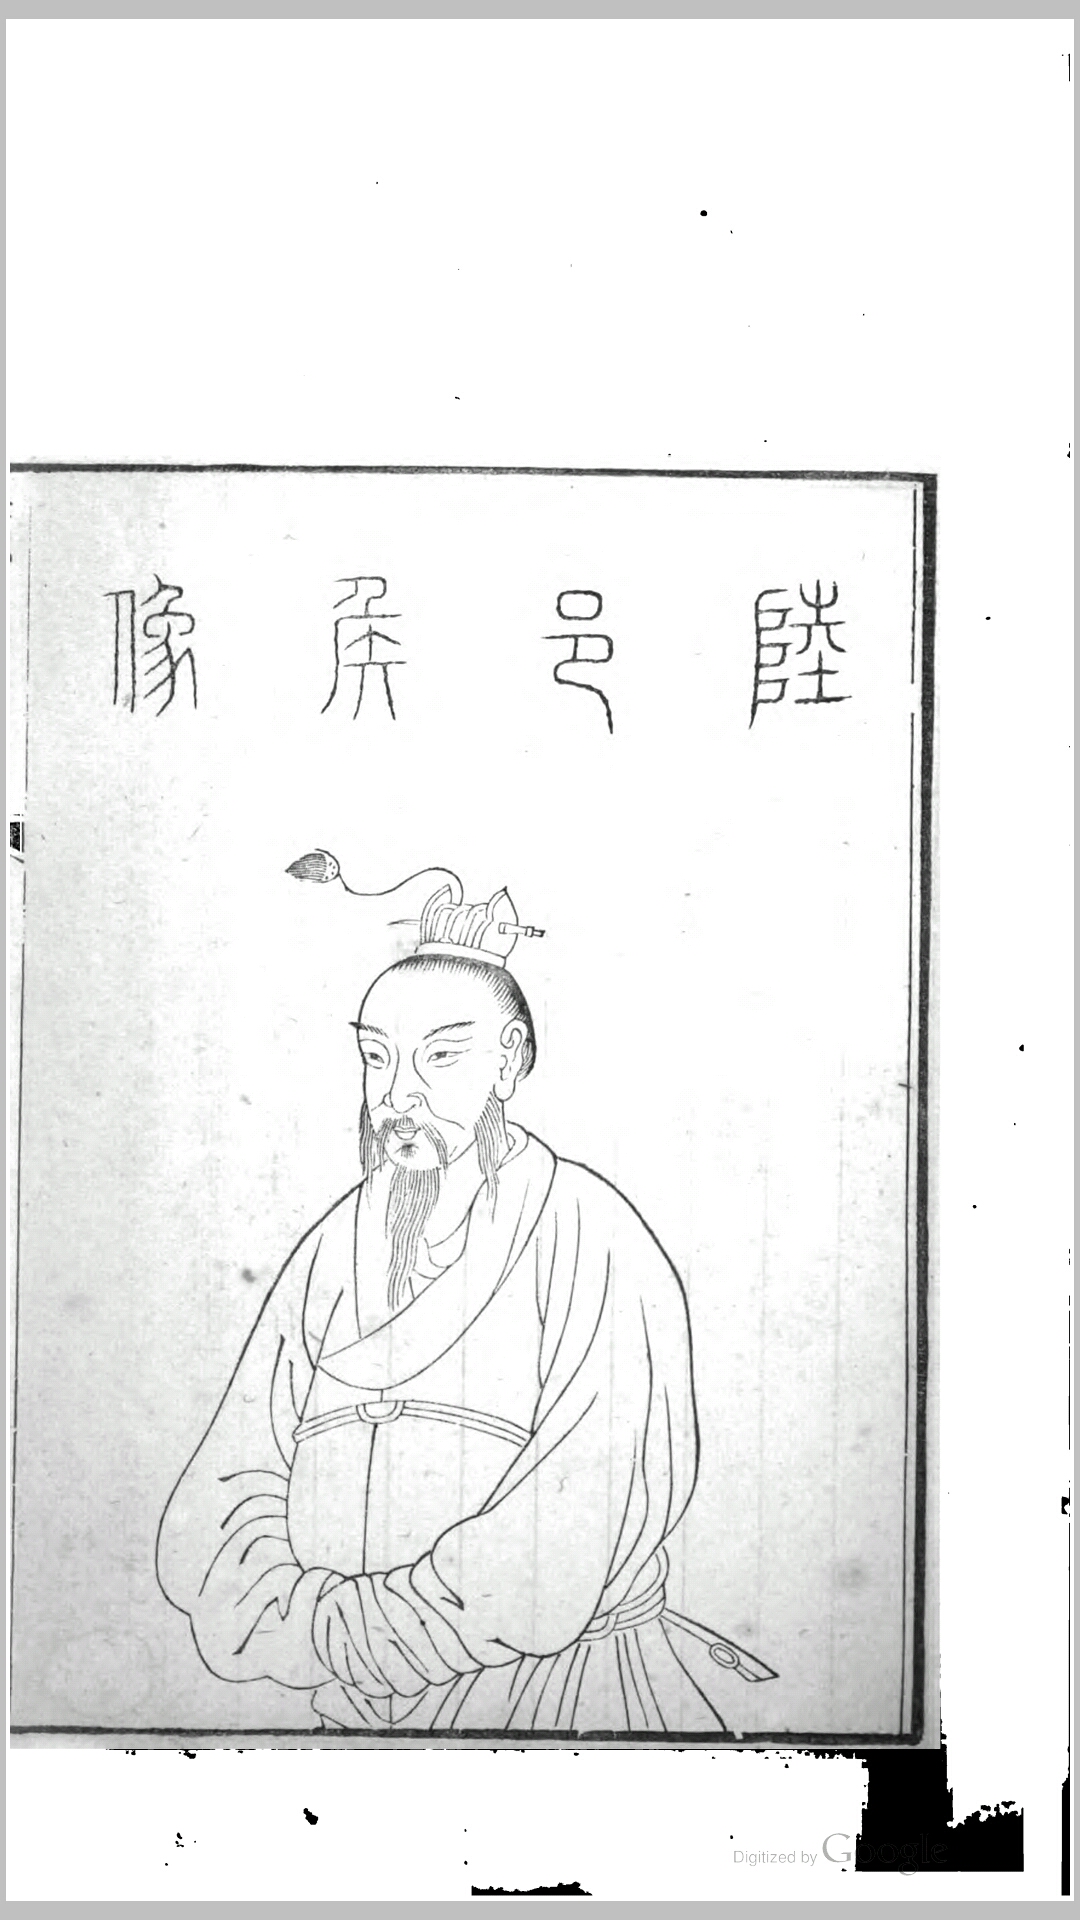 陸邑侯像
Digitized by Google